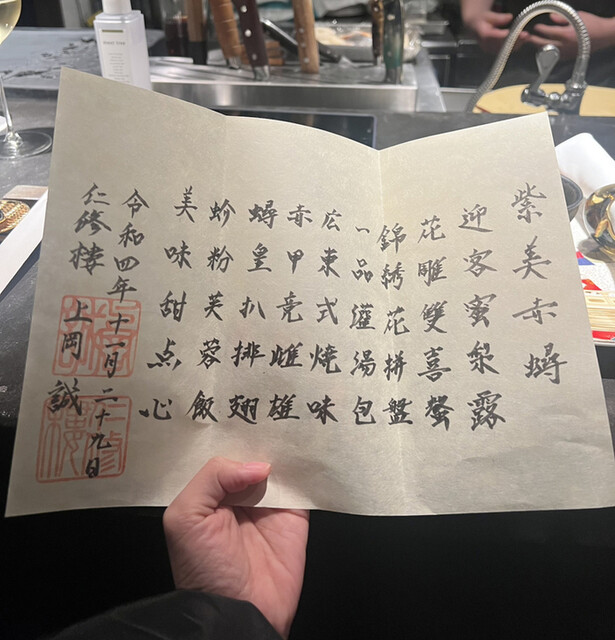 紫美赤蟳
迎客蜜梨露
花雕雙喜螯
錦綉花拼盤
一品灌湯包
広東式燒味
赤甲亮雌雄
蟳皇扒排翅
蚧粉芙蓉飯
美味甜点心
令和四年十一月二十九日
仁修樓 上岡 誠